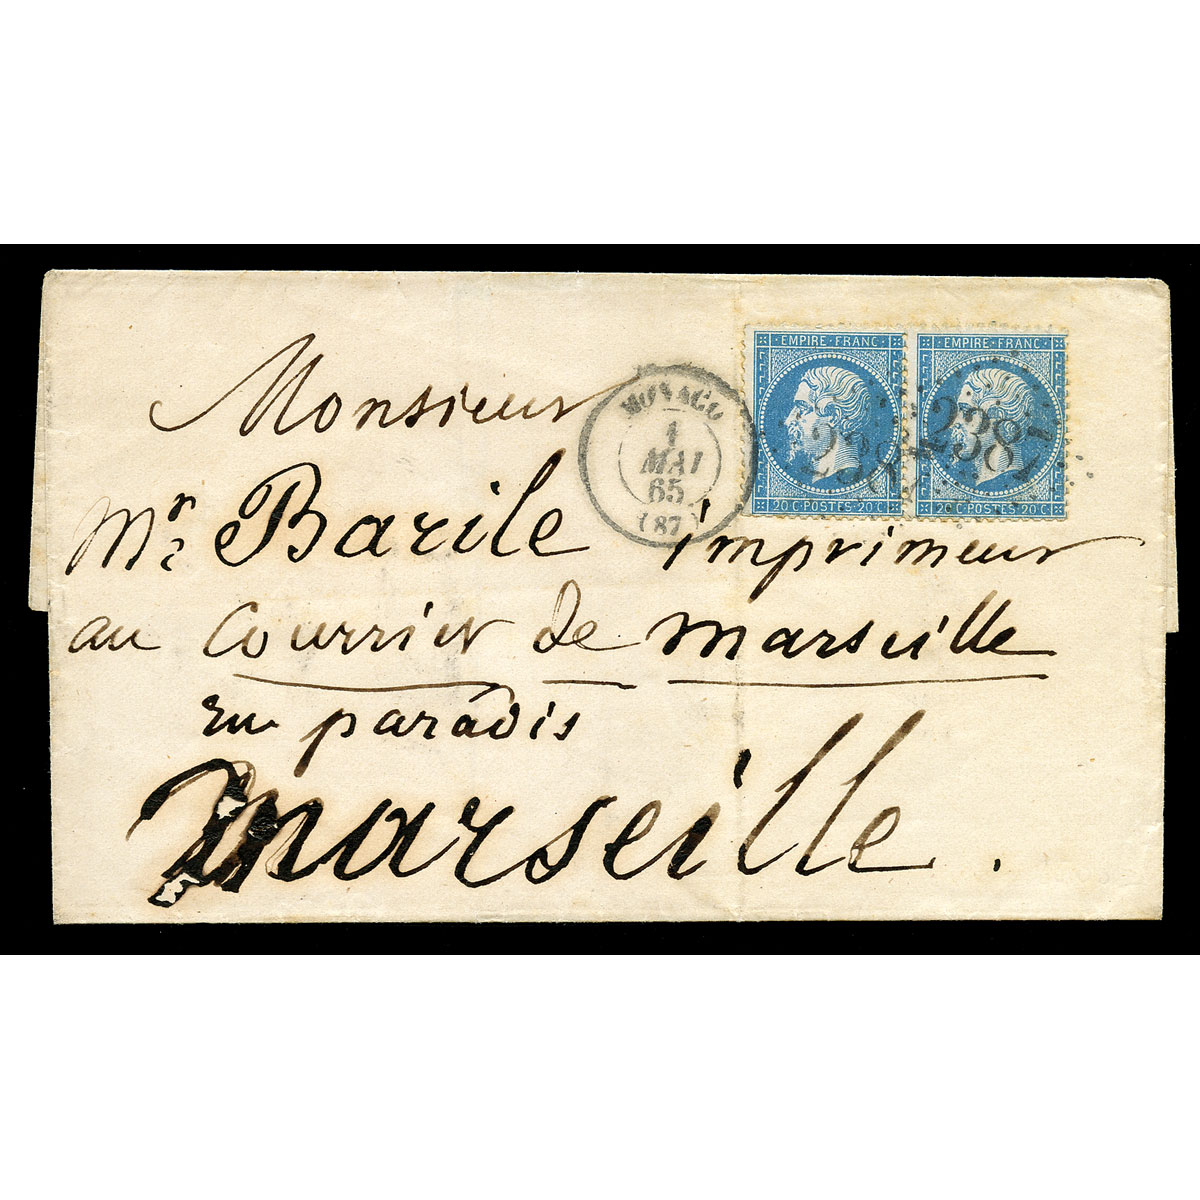 EMPIRE·FRANC·
EMPIRE·FRANC·
20 C·POSTES·20 C
20 C·POSTES·20 C
238
2387
MONACO
1
MAI
65
(87)
Monsieur
Mr Barile imprimeur
au Courrier de Marseille
rue paradis
Marseille.